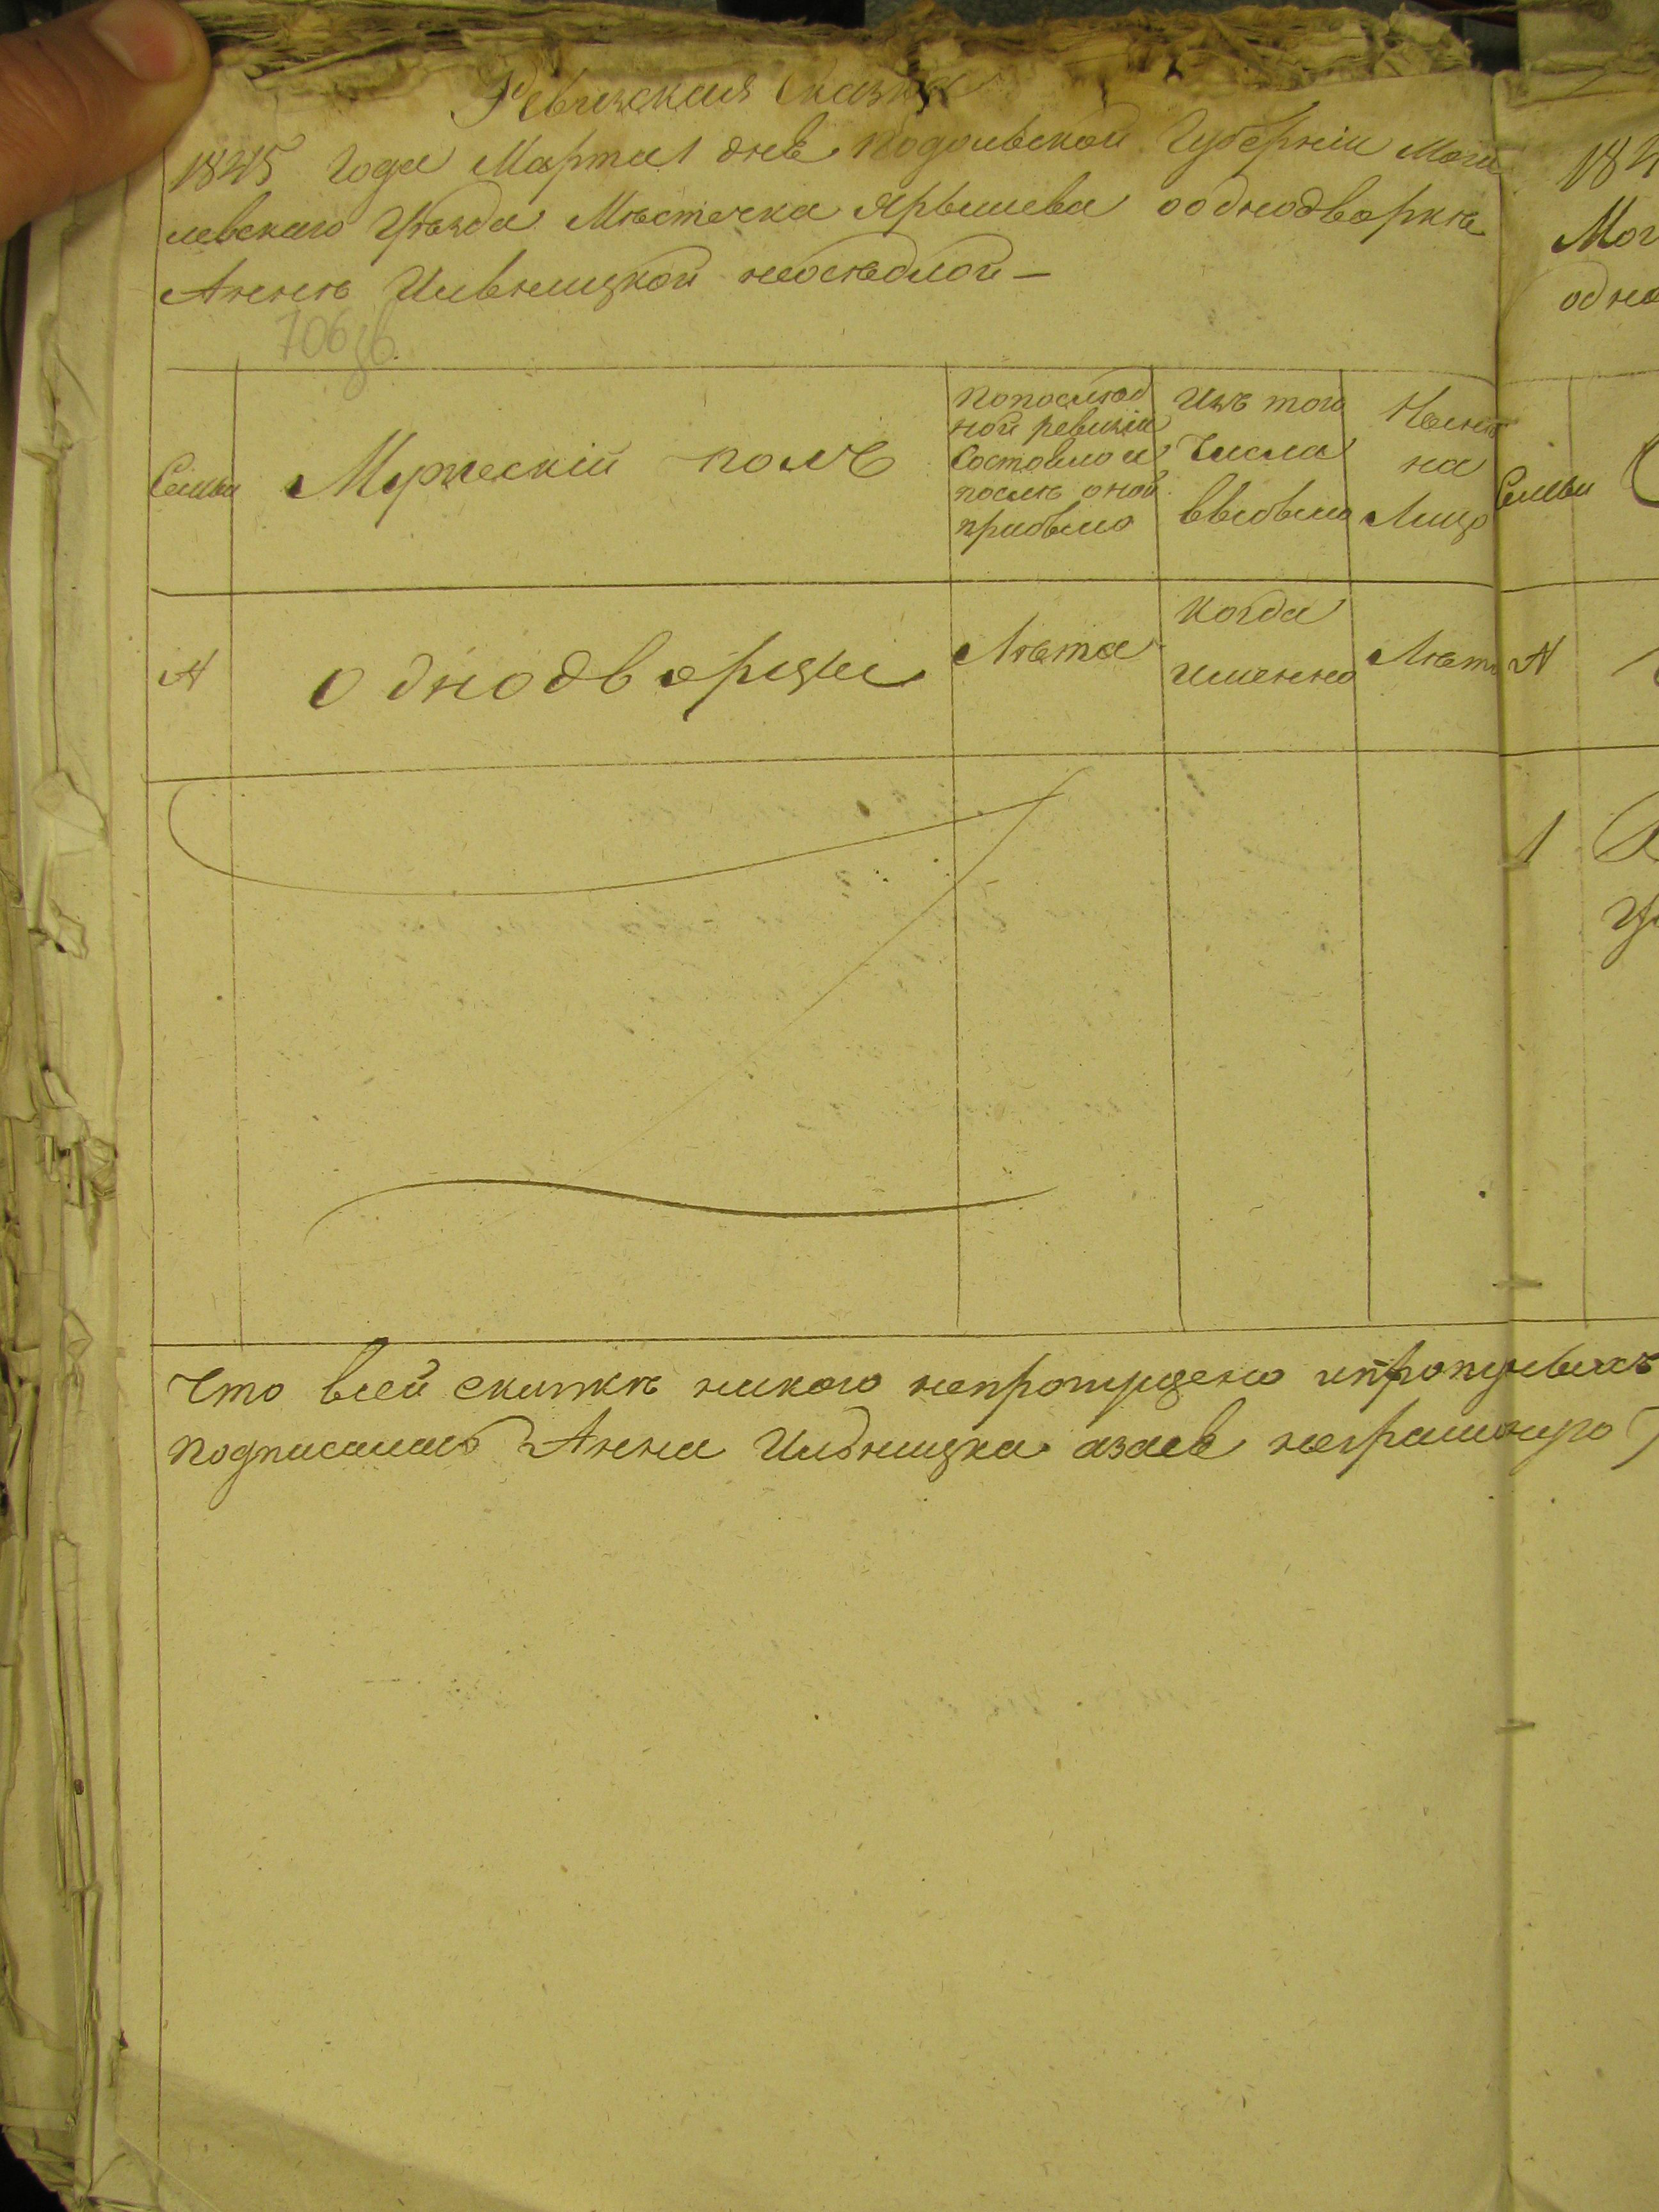 Ревизская Сказка
1845 Года Марта 1 дня Подольской Губерніи Моги
левскаго Уѣзда Мѣстечка Ярышева ооднодворкѣ
Аннѣ Ильницкой неосѣдлой —
706
Семьи
Мужескій полъ
Попослѣд
ной ревизіи
Состояло и
послѣ оной
прибыло
Изъ того
Числа
выбыло
Нынѣ
на
Лицо
№
Однодворцы
Лѣта
Когда
Именно
Лѣта
Что всей сказкѣ никого непропущено
подписалась Анна Ильницка азаеѣ неграмотную
184
Мог
одно
Семьи
№
1